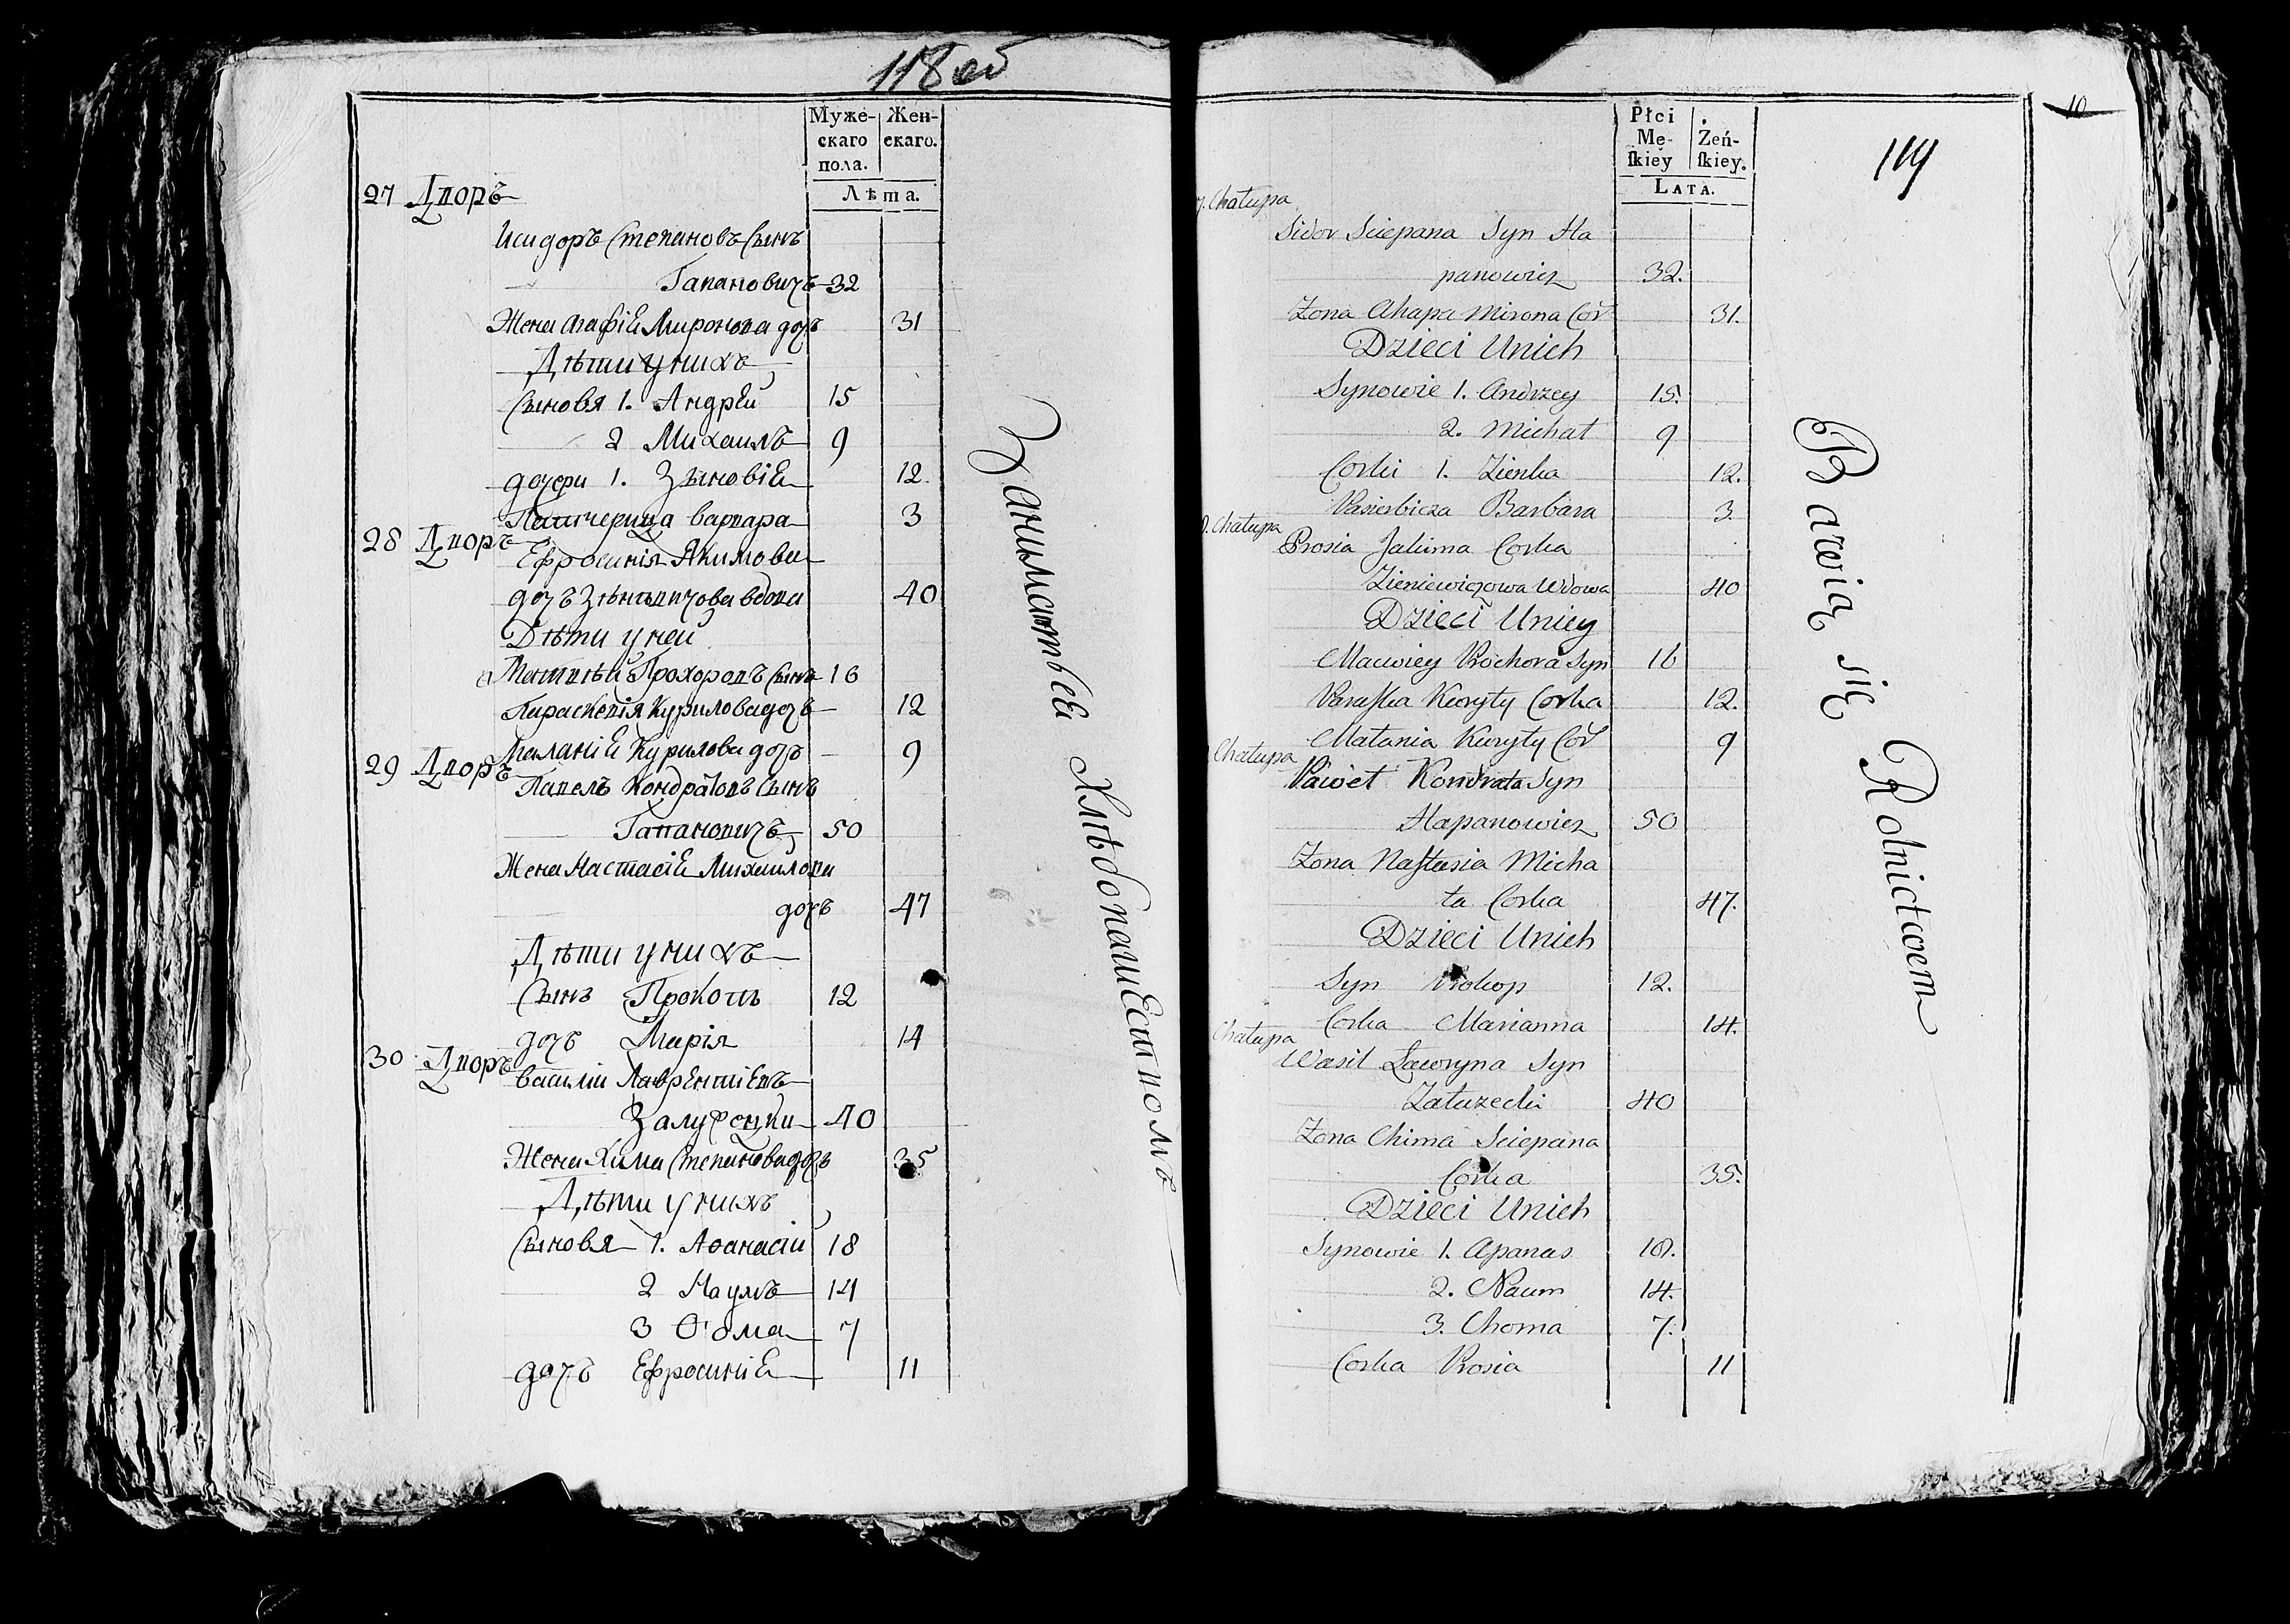 118 об
Муже-
скаго
пола.
Жен-
скаго.
Лѣта.
27 Дворъ
Исидоръ Степановъ Сынъ
Гапановичъ 32
Жена Агафія Миронова дочь 31
Дѣти у нихъ
Сыновя 1. Андрей 15
2 Михаилъ 9
дочери 1. Зѣновія 12
Патчерица варвара 3
28 Дворъ
Ефросинія Якимова
дочъ Зѣневичова вдова 40
Дѣти у ней
Матвѣй Прохоровъ Сынъ 16
Параскевія Курилова дочъ 12
Маланія Курилова дочъ 9
29 Дворъ
Павелъ Кондратовъ Сынъ
Гапановичъ 50
Жена Настасія Михаилова
дочъ 47
Дѣти у нихъ
Сынъ Прокопъ 12
дочъ Марія 14
30 Дворъ
василій Лаврентіевъ
Залужецки 40
Жена Хима Степанова дочъ 35
Дѣти у нихъ
Сыновя 1. Аѳанасій 18
2 Наумъ 14
3 Ѳома 7
дочъ Ефросинія 11
Занимаются Хлѣбопашествомъ
10
119
Płci
Mę-
ſkiey
Żeń-
ſkiey.
LATA.
Chałupa
Sidor Sciepana Syn Ha
panowicz 32.
Zona Ahapa Mirona Cor 31.
Dzieci Unich
Synowie 1. Andrzey 15.
2. Michał 9
Corki 1. Zienka 12.
Pasierbica Barbara 3.
Chałupa
Prosia Jakima Corka
Zieniewiczowa Wdowa 40
Dzieci Uniey
Maciey Prochora Syn 16
Paraſka Kuryły Corka 12.
Małania Kuryły Cor 9
Chałupa
Paweł Kondrata Syn
Hapanowicz 50
Zona Naſtasia Micha
ła Corka 47.
Dzieci Unich
Syn Prokop 12.
Corka Marianna 14.
Chałupa
Wasil Ławryna Syn
Załuzecki 40
Zona Chima Sciepana
Corka 35.
Dzieci Unich
Synowie 1. Apanas 18.
2. Naum 14.
3. Choma 7.
Corka Prosia 11
Bawią się Rolnictwem